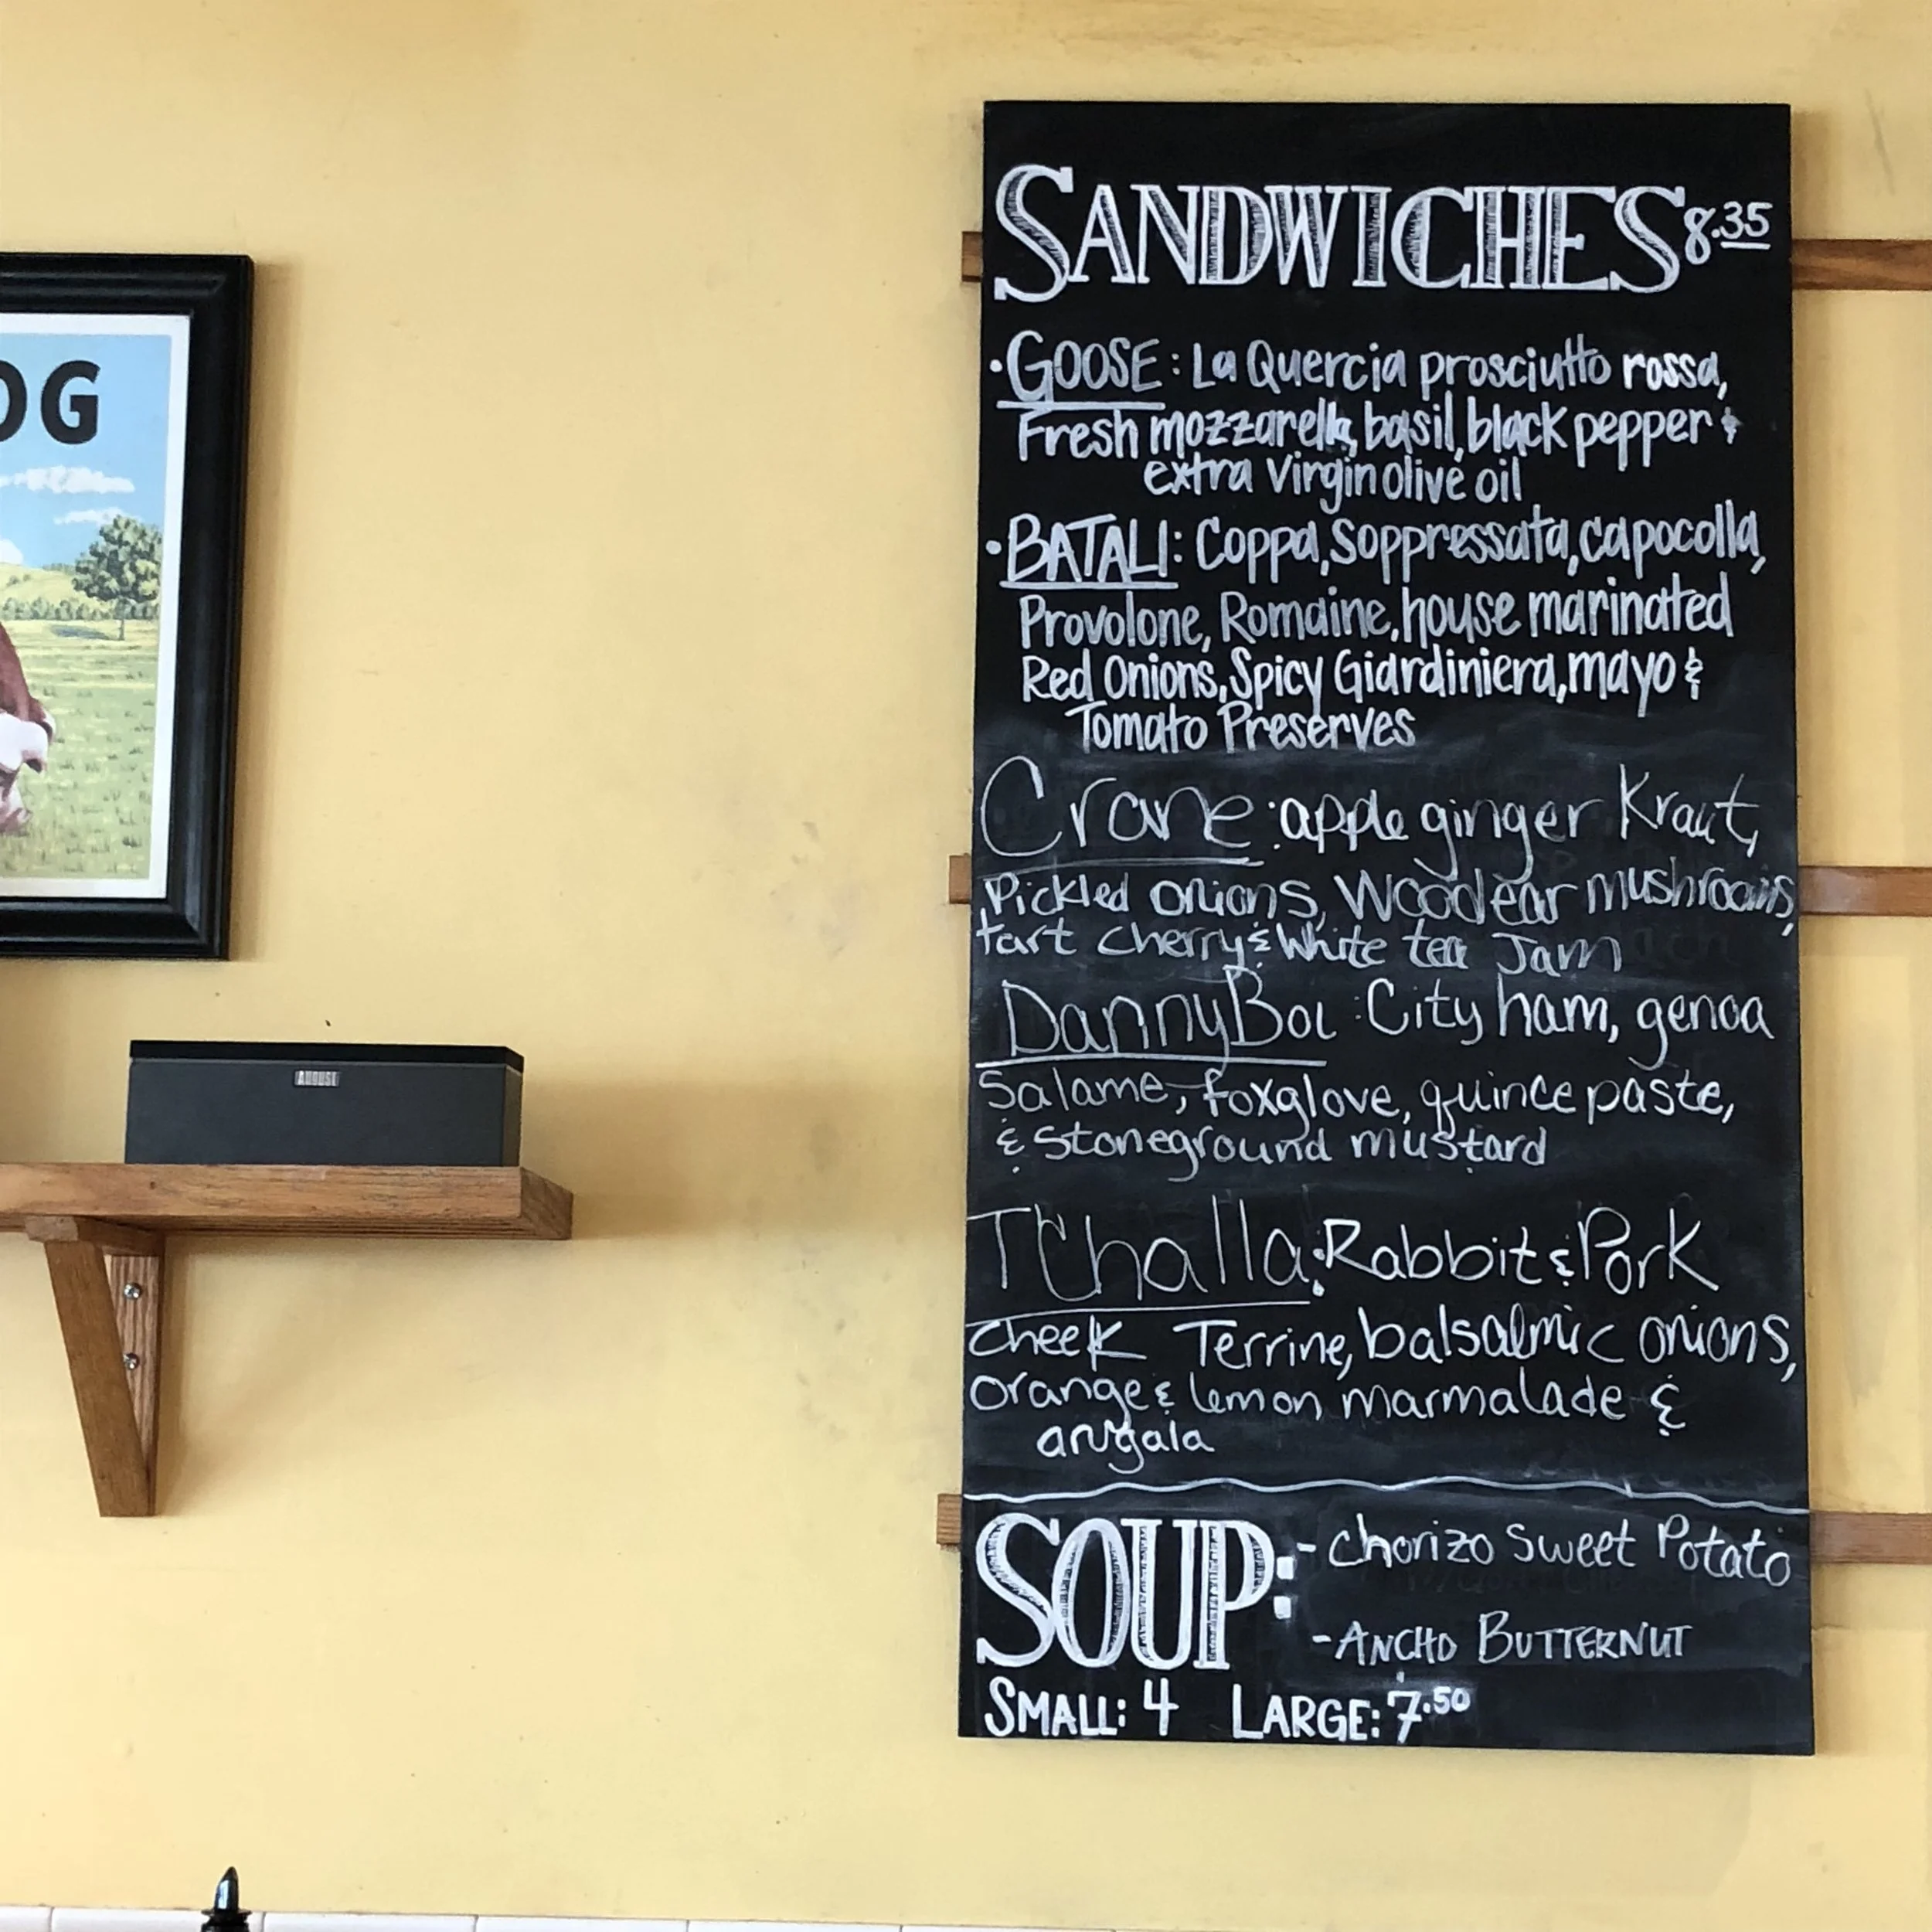 OG
AUGUST
SANDWICHES 8.35
· GOOSE: La Quercia prosciutto rossa,
Fresh mozzarella, basil, black pepper &
extra virgin olive oil
· BATALI: Coppa, Soppressata, capocolla,
Provolone, Romaine, house marinated
Red Onions, Spicy Giardiniera, mayo &
Tomato Preserves
Crane: apple ginger Kraut,
Pickled onions, Woodear mushrooms,
tart cherry & White tea Jam
DannyBoi: City ham, genoa
Salame, foxglove, quince paste,
& Stoneground mustard
TChalla: Rabbit & Pork
cheek Terrine, balsalmic onions,
orange & lemon marmalade &
arugala
SOUP: - Chorizo Sweet Potato
- ANCHO BUTTERNUT
SMALL: 4 LARGE: 7.50